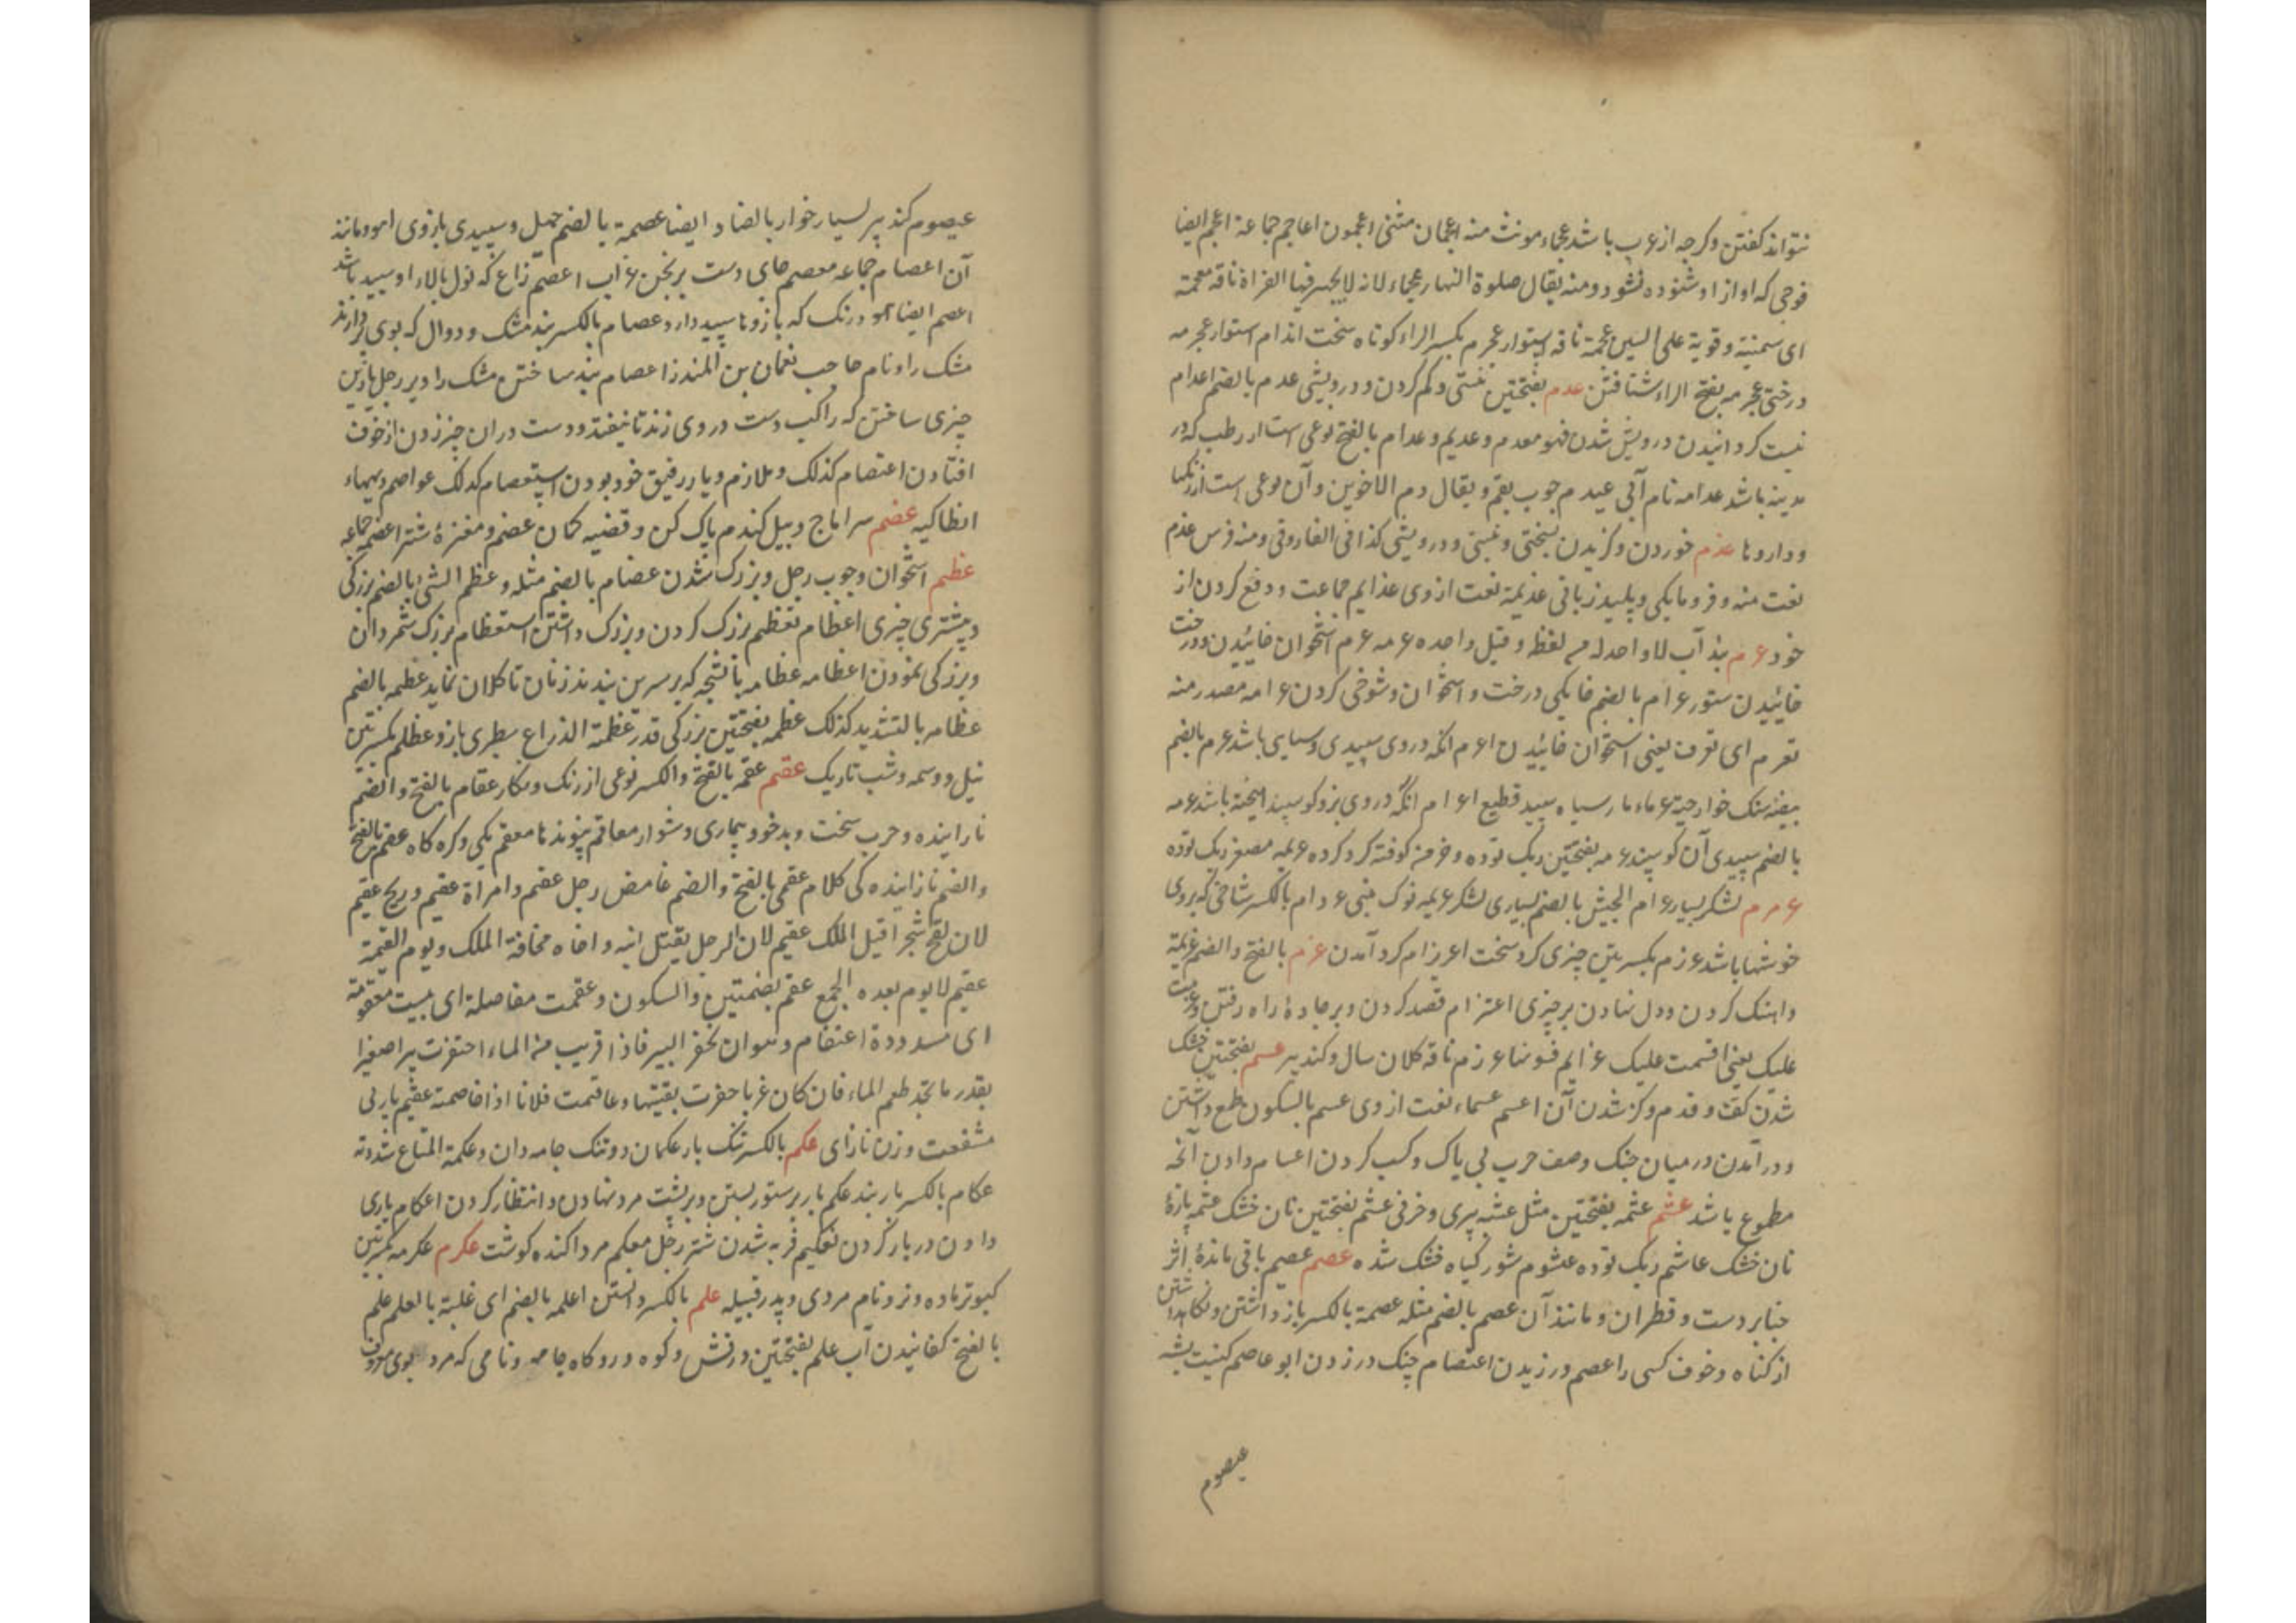 نتواند کفتن وکرچه از عرب باشد عجماء مونث منه اعجمان مثنی اعجمون اعاجم جماعة اعجم ایضا
فوجی که اواز او شنوده نشود ومنه یقال صلوة النهار عجماء لانه لا یجهر فیها القراة ناقه معجمة
ای سمینة وقویة علی السیر عجمة ناقه استوار عجرم بکسر الراء کوتاه سخت اندام استوار عجرمه
درختی عجرمه بفتح الراء شتافتن عدم بفتحتین نیستی وکم کردن ودرویشی عدم بالضم اعدام
نیست کردانیدن درویش شدن فهو معدم وعدیم وعدام بالفتح نوعی است از رطب که در
مدینه باشد عدامه نام آبی عیدم چوب بقم ویقال دم الاخوین وآن نوعی است از رنکها
وداروها عذم خوردن وکزیدن بسختی ودرویشی کذا فی الفاروقی ومنه فرس عذم
نعت منه وفرومایکی وپلید زبانی عذیمة نعت از وی عذایم جماعت ودفع کردن از
خود عرم بند آب لا واحد له من لفظه وقیل واحده عرمه عرم استخوان خاییدن ودرخت
خاییدن ستور عرام بالضم خایکی درخت واستخوان وشوخی کردن عرامه مصدر منه
تعرم ای تعرف یعنی استخوان خاییدن اعرم انکه در وی سپیدی وسیاهی باشد عرم بالضم
بیضه سنک خوار حیة عرماء مار سیاه سپید قطیع اعرام انکه در وی بز وکوسپند امیخته باشد عرمه
بالضم سپیدی آن کوسپند عرمه بفتحتین ریک توده وخرمن کوفته کرد کرده عریمه مصغر ریک توده
عرمرم لشکر بسیار عرام الجیش بالضم بسیاری لشکر عریمه نوک بینی عردام بالکسر شاخی که بروی
خوشها باشد عرزم بکسرتین چیزی کرد سخت اعرنزام کرد آمدن عزم بالفتح والضم عزیمة
واهنک کردن ودل نهادن بر چیزی اعتزام قصد کردن وبر جادهٔ راه رفتن وعزمت
علیک یعنی اقسمت علیک عزایم فسونها عوزم ناقه کلان سال وکنده پیر عسم بفتحتین خشک
شدن کف وقدم وکژ شدن آن اعسم عسماء نعت از وی عسم بالسکون طمع داشتن
ودر آمدن در میان جنک وصف حرب بی باک وکسب کردن اعسام دادن آنچه
مطموع باشد عشم عشمه بفتحتین مثل عشبه پیری وخرفی عشم بفتحتین نان خشک عشمه پارهٔ
نان خشک عاشم ریک توده عیشوم شور کیاه خشک شده عصم عصیم باقی ماندهٔ اثر
حنا بر دست وقطران ومانند آن عصم بالضم مثله عصمة بالکسر باز داشتن ونکاهداشتن
از کناه وخوف کسی را عصم ورزیدن اعتصام چنک در زدن ابو عاصم کنیت پشه
عیصوم
عیصوم کنده پیر بسیار خوار بالضاد ایضا عصمة بالضم حمیل وسپیدی بازوی اهو ومانند
آن اعصام جماعه معصم جای دست برنجن غراب اعصم زاغ که نول بالاء او سپید باشد
اعصم ایضا اهو ورنک که بازوها سپید دارد عصام بالکسر بند مشک ودوال که بوی فرازند
مشک را ونام حاجب نعمان بن المنذر اعصام بند ساختن مشک را وبر رحل یا زین
چیزی ساختن که راکب دست در وی زند تا نیفتد ودست دران چیز زدن از خوف
افتادن اعتصام کذلک وملازم ویار رفیق خود بودن استعصام کذلک عواصم دیهاء
انطاکیه عضم سر اماج وبیل کندم پاک کن وقضیه کمان عضم ومغزهٔ شتر اعضمه جماعه
عظم استخوان وچوب رحل وبزرک شدن عظام بالضم مثله وعظم الشئ بالضم بزرکی
وبیشتری چیزی اعظام تعظیم بزرک کردن وبزرک داشتن استعظام بزرک شمردن
وبزرکی نمودن اعظامه عظامه بالشجه که بر سرین بندند زنان تا کلان نماید عظمه بالضم
عظامه بالتشدید کذلک عظمه بفتحتین بزرکی قدر عظمة الذراع سطبری بازو عظلم بکسرتین
نیل ووسمه وشب تاریک عقم عقمه بالفتح والکسر نوعی از رنک ونکار عقام بالفتح والضم
نازاینده وحرب سخت وبدخو وبیماری دشوار معاقم پیوندها معقم یکی وکره کاه عقم بالفتح
والضم نازاینده کی کلام عقمی بالفتح والضم غامض رجل عقیم وامراة عقیم وریح عقیم
لان تلقح شجرا قیل الملک عقیم لان الرجل یقتل ابنه واخاه مخافة الملک ویوم القیمة
عقیم لا یوم بعده الجمع عقم بضمتین والسکون وعقمت مفاصله ای یبست معقومة
ای مسدودة اعتقام وهو ان تحفر البیر فاذا قریب من الماء احتفرت بیرا صغیرا
بقدر ما تجد طعم الماء فان کان عذبا حفرت بقیتها وعاقمت فلانا اذا خاصمته عقیم بار بی
منفعت وزن نازای عکم بالکسر تنک بار عکمان دو تنک جامه دان وعکمة المتاع شددته
عکام بالکسر بار بند عکم بار بر ستور بستن وبر پشت مرد نهادن وانتظار کردن اعکام یاری
دادن در بار کردن تعکیم فربه شدن شتر رجل معکم مرد اکنده کوشت عکرم عکرمه بکسرتین
کبوتر ماده ونر ونام مردی وپدر قبیله علم بالکسر دانستن اعلمه بالضم ای غلبة بالعلم علم
بالفتح کفانیدن آب علم بفتحتین درفش وکوه ورودکاه جامه ونامی که مرد بوی معروف